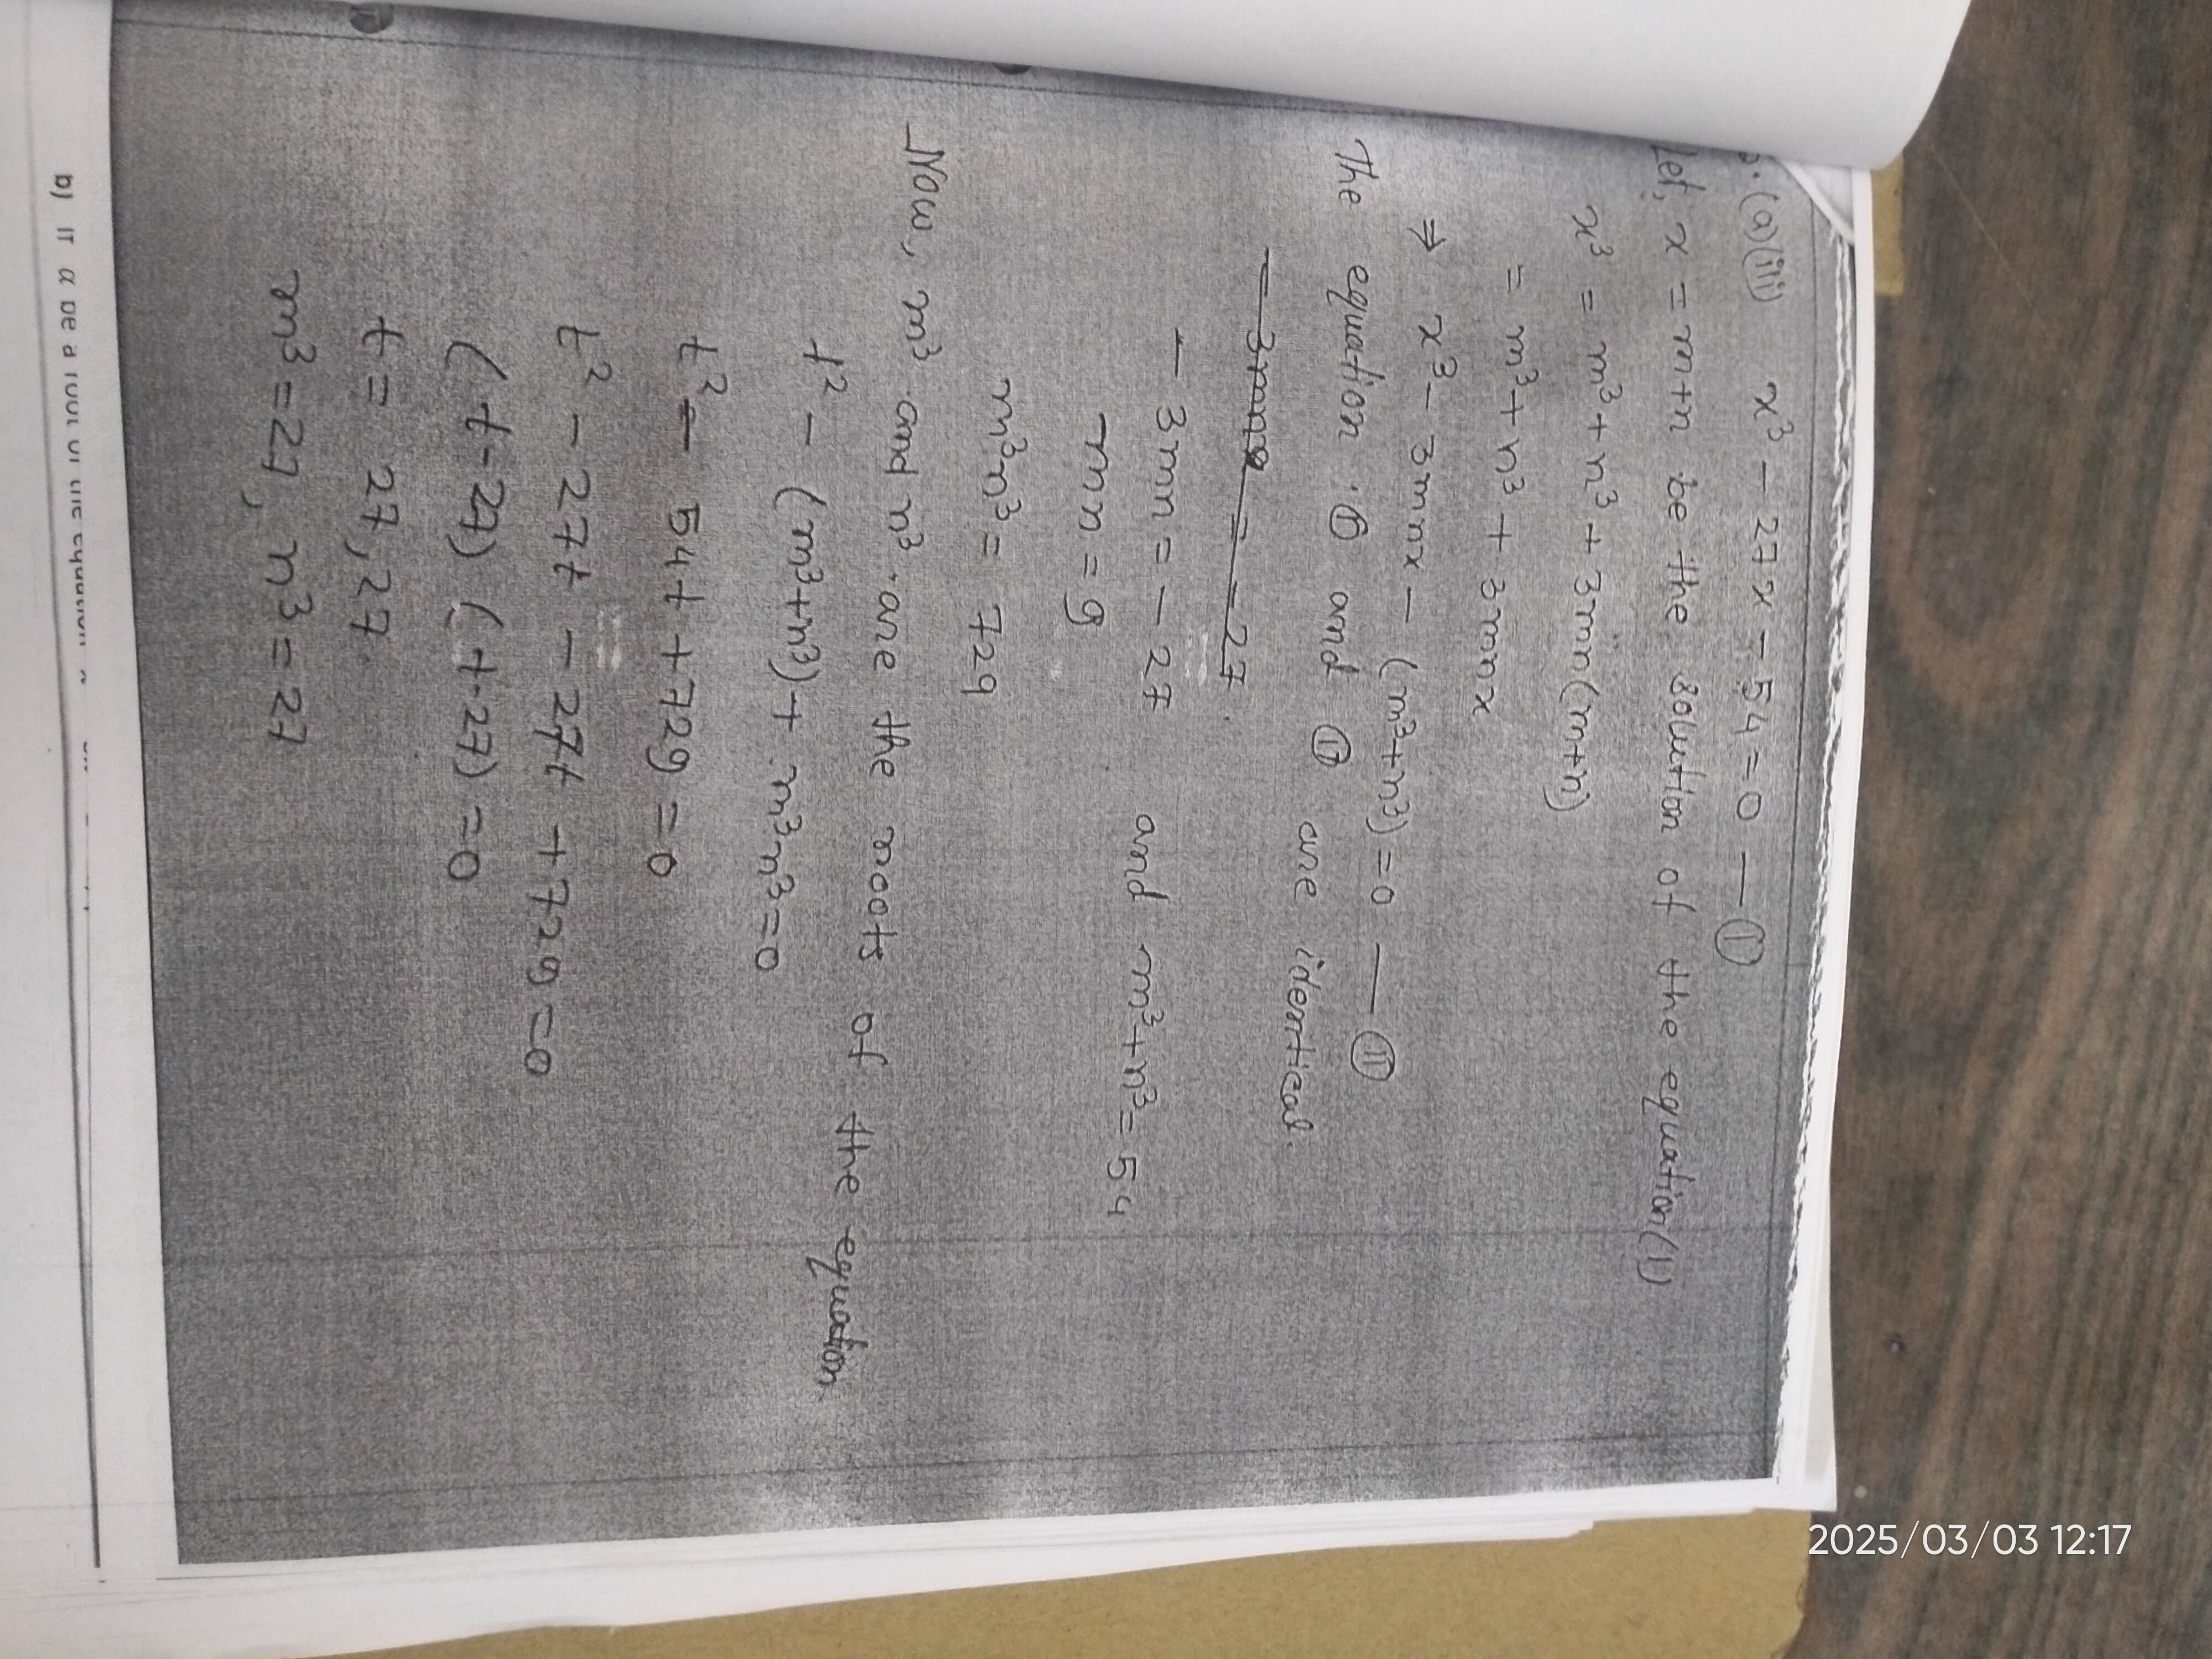 2025/03/03 12:17
(a)(iii) x³ - 27x - 54 = 0 — (I)
Let, x = m+n be the solution of the equation (1)
x³ = m³ + n³ + 3mn(m+n)
= m³ + n³ + 3mnx
⇒ x³ - 3mnx - (m³+n³) = 0 — (II)
The equation (I) and (II) are identical.
- 3mn = -27
- 3mn = - 27 and m³+n³ = 54
mn = 9
m³n³ = 729
Now, m³ and n³ are the roots of the equation
t² - (m³+n³) + m³n³ = 0
t² - 54t + 729 = 0
t² - 27t - 27t + 729 = 0
(t-27) (t-27) = 0
t = 27, 27
m³ = 27, n³ = 27
b) If α be a root of the equation